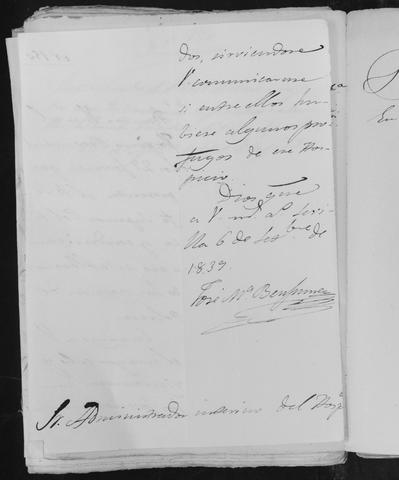 dos, sirviendose
V. comunicarme
si entre ellos hu-
biese algunos pró-
fugos de ese Hos-
picio.
Dios gue
a V. m.s a.s Sevi-
lla 6 de Setbre de
1839.
José Ma
Sr. Administrador interino del Hospo